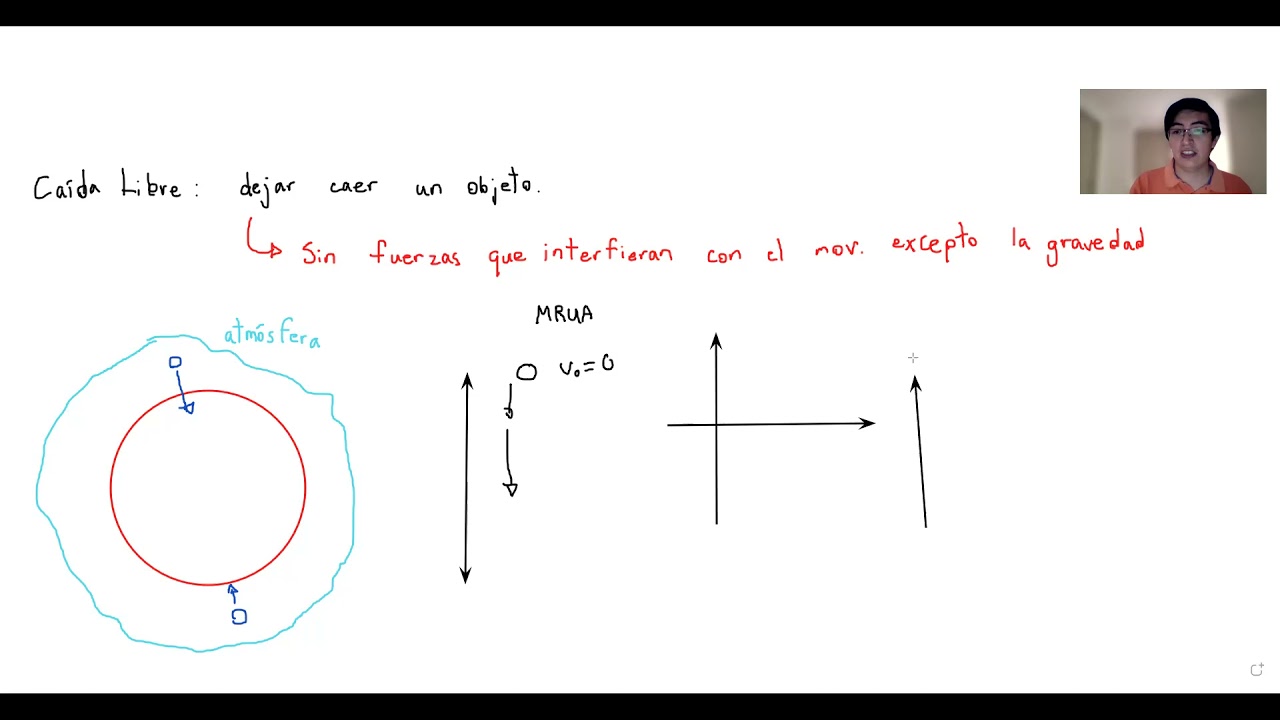 Caída Libre: dejar caer un objeto.
Sin fuerzas que interfieran con el mov. excepto la gravedad
atmósfera
MRUA
v₀=0